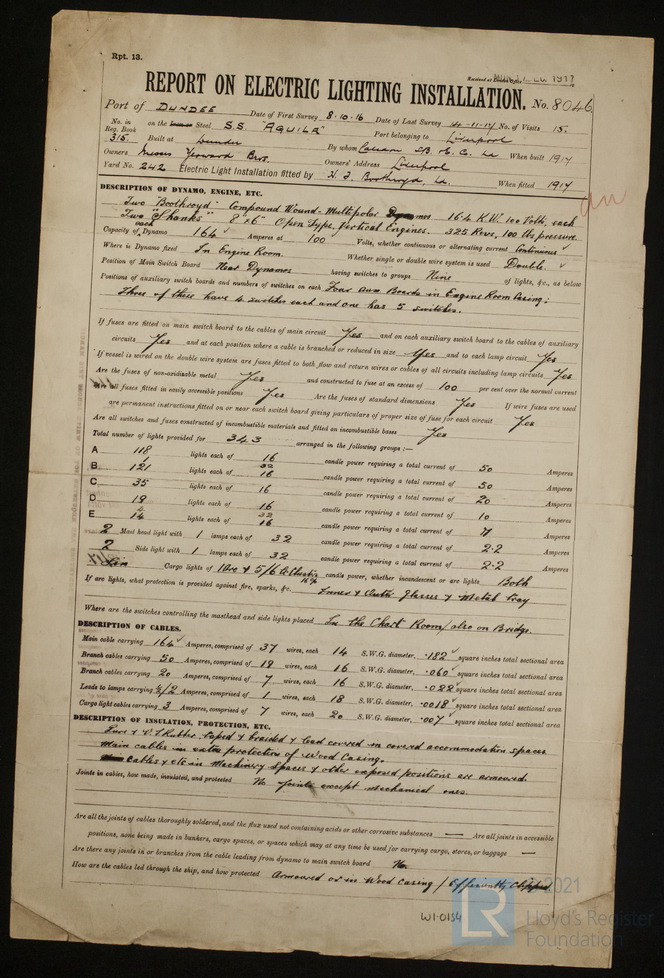 Rpt. 13.
REPORT ON ELECTRIC LIGHTING INSTALLATION. No. 8046
Port of DUNDEE Date of First Survey 8.10.16 Date of Last Survey No. of Visits 15.
No. in Reg. Book 315. on the Steel S.S. "AQUILA" Port belonging to Liverpool
Built at Dundee By whom Caledon S.B. & E. Co. Ld When built 1917
Owners Messrs Yeoward Bros. Owners' Address Liverpool
Yard No. 242 Electric Light Installation fitted by Boothroyd, Ld. When fitted 1917
DESCRIPTION OF DYNAMO, ENGINE, ETC.
Two "Boothroyd" Compound Wound-Multipolar Dynamos 16.4 K.W. 100 Volts, each
Two "Shanks" 8" x 6" Open Type, Vertical Engines. 325 Revs, 100 lbs pressure.
Capacity of Dynamo each 164 Amperes at 100 Volts, whether continuous or alternating current Continuous
Where is Dynamo fixed In Engine Room. Whether single or double wire system is used Double
Position of Main Switch Board Near Dynamos having switches to groups Nine of lights, &c., as below
Positions of auxiliary switch boards and numbers of switches on each Four Aux Boards in Engine Room Casing;
Three of these have 4 switches each and one has 5 switches.
If fuses are fitted on main switch board to the cables of main circuit Yes and on each auxiliary switch board to the cables of auxiliary
circuits Yes and at each position where a cable is branched or reduced in size Yes and to each lamp circuit Yes
If vessel is wired on the double wire system are fuses fitted to both flow and return wires or cables of all circuits including lamp circuits Yes
Are the fuses of non-oxidizable metal Yes and constructed to fuse at an excess of 100 per cent over the normal current
Are all fuses fitted in easily accessible positions Yes Are the fuses of standard dimensions Yes If wire fuses are used
are permanent instructions fitted on or near each switch board giving particulars of proper size of fuse for each circuit Yes
Are all switches and fuses constructed of incombustible materials and fitted on incombustible bases Yes
Total number of lights provided for 343 arranged in the following groups :—
A 118 lights each of 16 candle power requiring a total current of 50 Amperes
B 1 121 lights each of 32 16 candle power requiring a total current of 50 Amperes
C 35 lights each of 16 candle power requiring a total current of 20 Amperes
D 19 lights each of 16 candle power requiring a total current of 10 Amperes
E 4 14 lights each of 32 16 candle power requiring a total current of 7 Amperes
2 Mast head light with 1 lamps each of 32 candle power requiring a total current of 2.2 Amperes
2 Side light with 1 lamps each of 32 candle power requiring a total current of 2.2 Amperes
Cargo lights of 1 Arc & 5/6 Lt Clusters 16 candle power, whether incandescent or arc lights Both
If arc lights, what protection is provided against fire, sparks, &c. Inner & Outer Glasses & Metal Tray
Where are the switches controlling the masthead and side lights placed In the Chart Room/also on Bridge.
DESCRIPTION OF CABLES.
Main cable carrying 164 Amperes, comprised of 37 wires, each 14 S.W.G. diameter, .182 square inches total sectional area
Branch cables carrying 50 Amperes, comprised of 19 wires, each 16 S.W.G. diameter, .060 square inches total sectional area
Branch cables carrying 20 Amperes, comprised of 7 wires, each 16 S.W.G. diameter, .022 square inches total sectional area
Leads to lamps carrying Amperes, comprised of 1 wires, each 18 S.W.G. diameter, .0018 square inches total sectional area
Cargo light cables carrying 3 Amperes, comprised of 7 wires, each 20 S.W.G. diameter, .007 square inches total sectional area
DESCRIPTION OF INSULATION, PROTECTION, ETC.
Pure & V.I. Rubber, taped & braided & lead covered in covered accommodation spaces
Main cables in extra protection of Wood Casing.
Cables & etc in Machinery Spaces & other exposed positions are armoured.
Joints in cables, how made, insulated, and protected No Joints except mechanical ones.
Are all the joints of cables thoroughly soldered, and the flux used not containing acids or other corrosive substances — Are all joints in accessible
positions, none being made in bunkers, cargo spaces, or spaces which may at any time be used for carrying cargo, stores, or baggage —
Are there any joints in or branches from the cable leading from dynamo to main switch board No
How are the cables led through the ship, and how protected Armoured or in Wood Casing / Efficiently Clipped
W1-0154
LR
© 2021
Lloyd's Register
Foundation